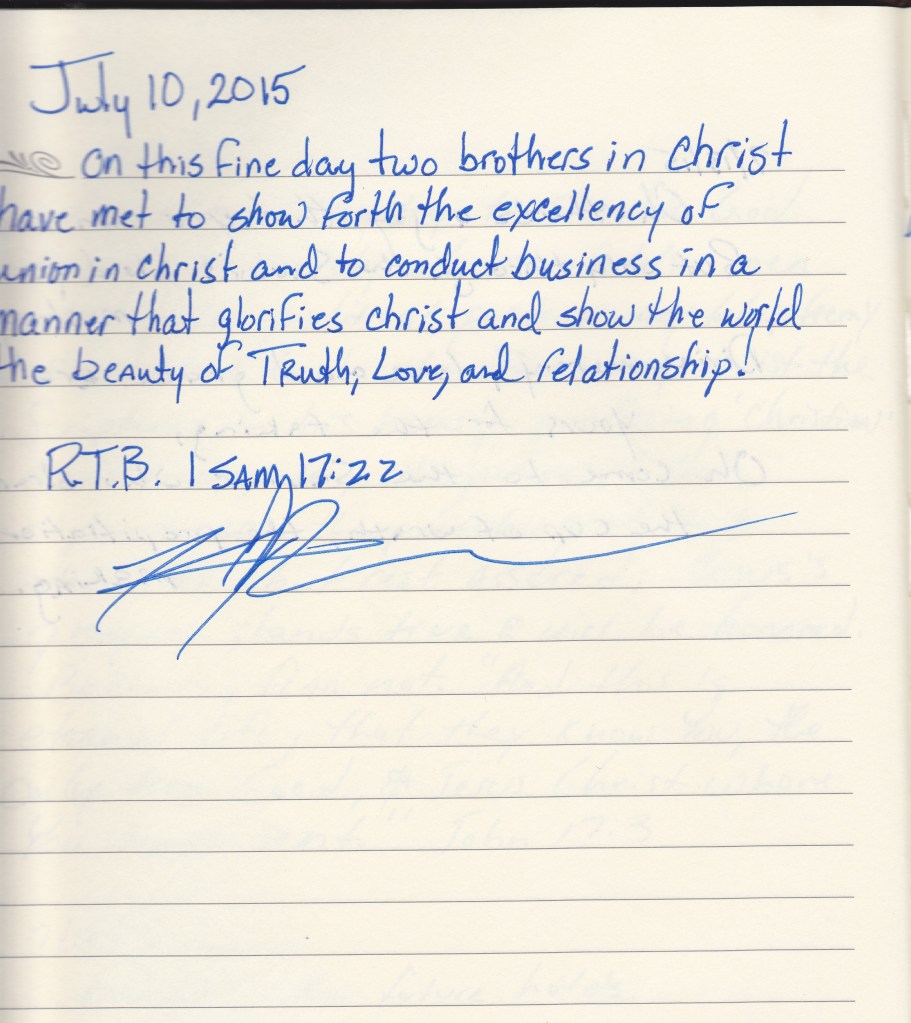 July 10, 2015
On this fine day two brothers in Christ
have met to show forth the excellency of
union in Christ and to conduct business in a
manner that glorifies Christ and show the world
the beauty of Truth, Love, and relationship!
R.T.B. 1 SAM 17:22